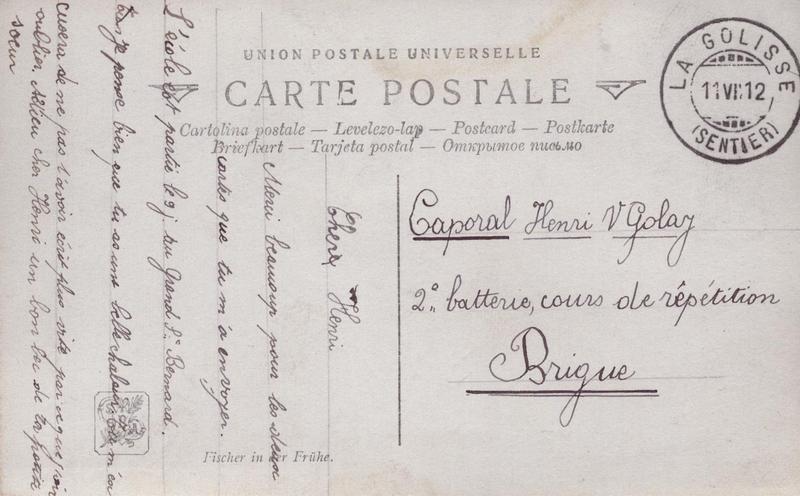 UNION POSTALE UNIVERSELLE
CARTE POSTALE
Cartolina postale — Levelezo-lap — Postcard — Postkarte
Briefkart — Tarjeta postal — Открытое письмо
LA GOLISSE
11 VI 12
(SENTIER)
Caporal Henri V Golay
2º batterie, cours de répétition
Brigue
Cher Henri
Merci beaucoup pour les deux
cartes que tu m'a envoyer.
L'école est partie le 9 j au Grand St Bernard.
je pense bien que tu as une belle chaleur, tu m'ex
cusera di ne pas t'avoir écrit plus vite parceque j'ai
oublier. Adieu cher Henri un bon bec de ta petite
soeur
Fischer in der Frühe.